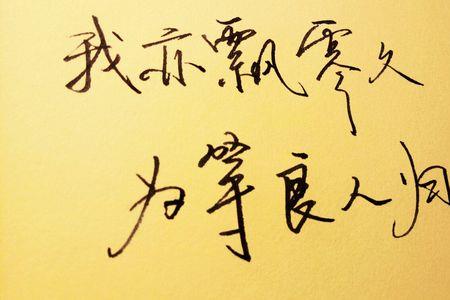 我亦飘零久
为等良人归